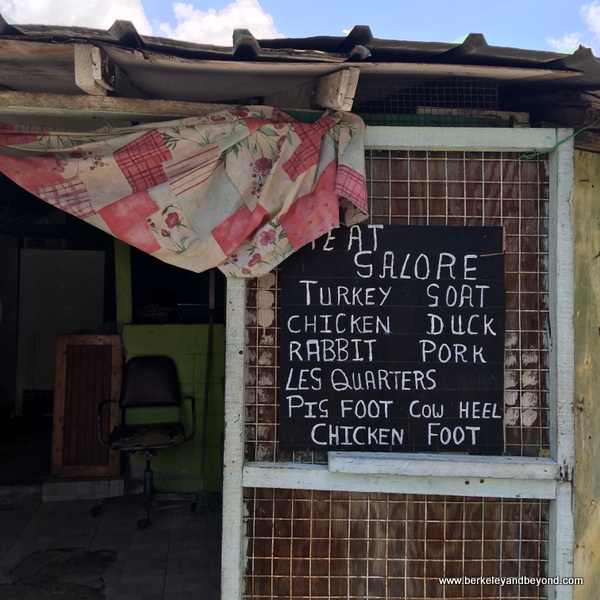 MEAT
GALORE
TURKEY GOAT
CHICKEN DUCK
RABBIT PORK
LEG QUARTERS
PIG FOOT COW HEEL
CHICKEN FOOT
www.berkeleyandbeyond.com